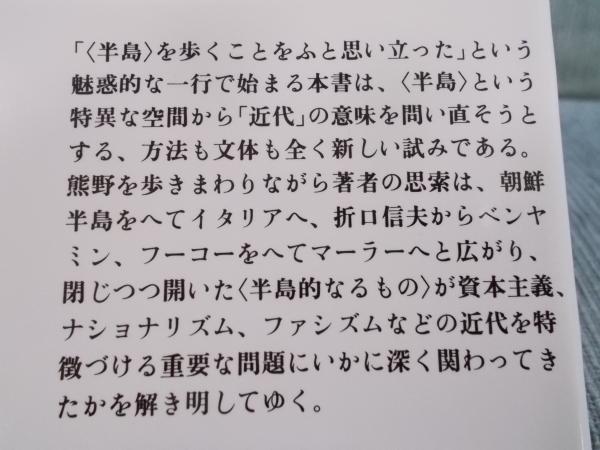 「〈半島〉を歩くことをふと思い立った」という
魅惑的な一行で始まる本書は、〈半島〉という
特異な空間から「近代」の意味を問い直そうと
する、方法も文体も全く新しい試みである。
熊野を歩きまわりながら著者の思索は、朝鮮
半島をへてイタリアへ、折口信夫からベンヤ
ミン、フーコーをへてマーラーへと広がり、
閉じつつ開いた〈半島的なるもの〉が資本主義、
ナショナリズム、ファシズムなどの近代を特
徴づける重要な問題にいかに深く関わってき
たかを解き明してゆく。